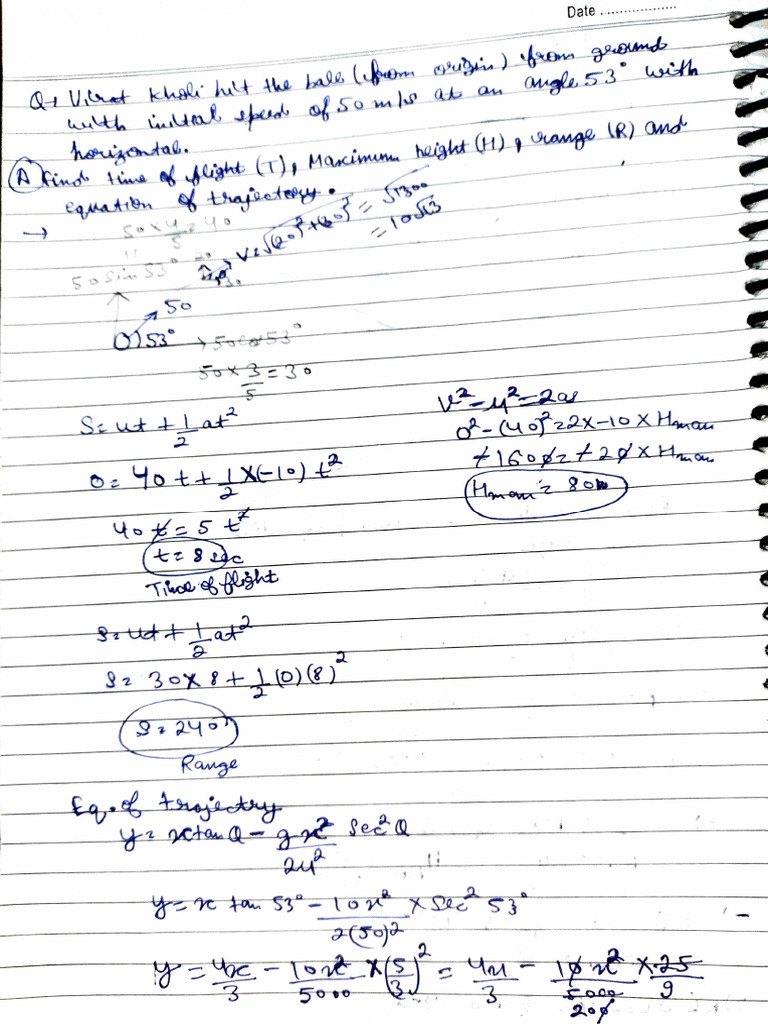 Date ..................
Q→ Virat Kholi hit the ball (from origin) from ground
with initial speed of 50 m/s at an angle 53° with
horizontal.
(A) Find time of flight (T), Maximum height (H), range (R) and
equation of trajectory.
→ 50 × 4/5 = 40
V = √(20)²+(30)² = √1300
= 10√13
50 sin 53° 20
30
50
O) 53° → 50 cos 53°
50 × 3/5 = 30
S = ut + 1/2 at²
0 = 40 t + 1/2 × (-10) t²
40 t = 5 t²
t = 8 sec
Time of flight
v² - u² = 2as
0² - (40)² = 2 × -10 × Hmax
+1600 = +20 × Hmax
Hmax = 80m
S = ut + 1/2 at²
S = 30 × 8 + 1/2 (0) (8)²
S = 240
Range
Eq. of trajectry
y = x tan θ - gx²/2u² sec² θ
y = x tan 53° - 10x²/2(50)² × sec² 53°
y = 4x/3 - 10x²/5000 × (5/3)² = 4x/3 - 10x²/5000 × 25/9
200